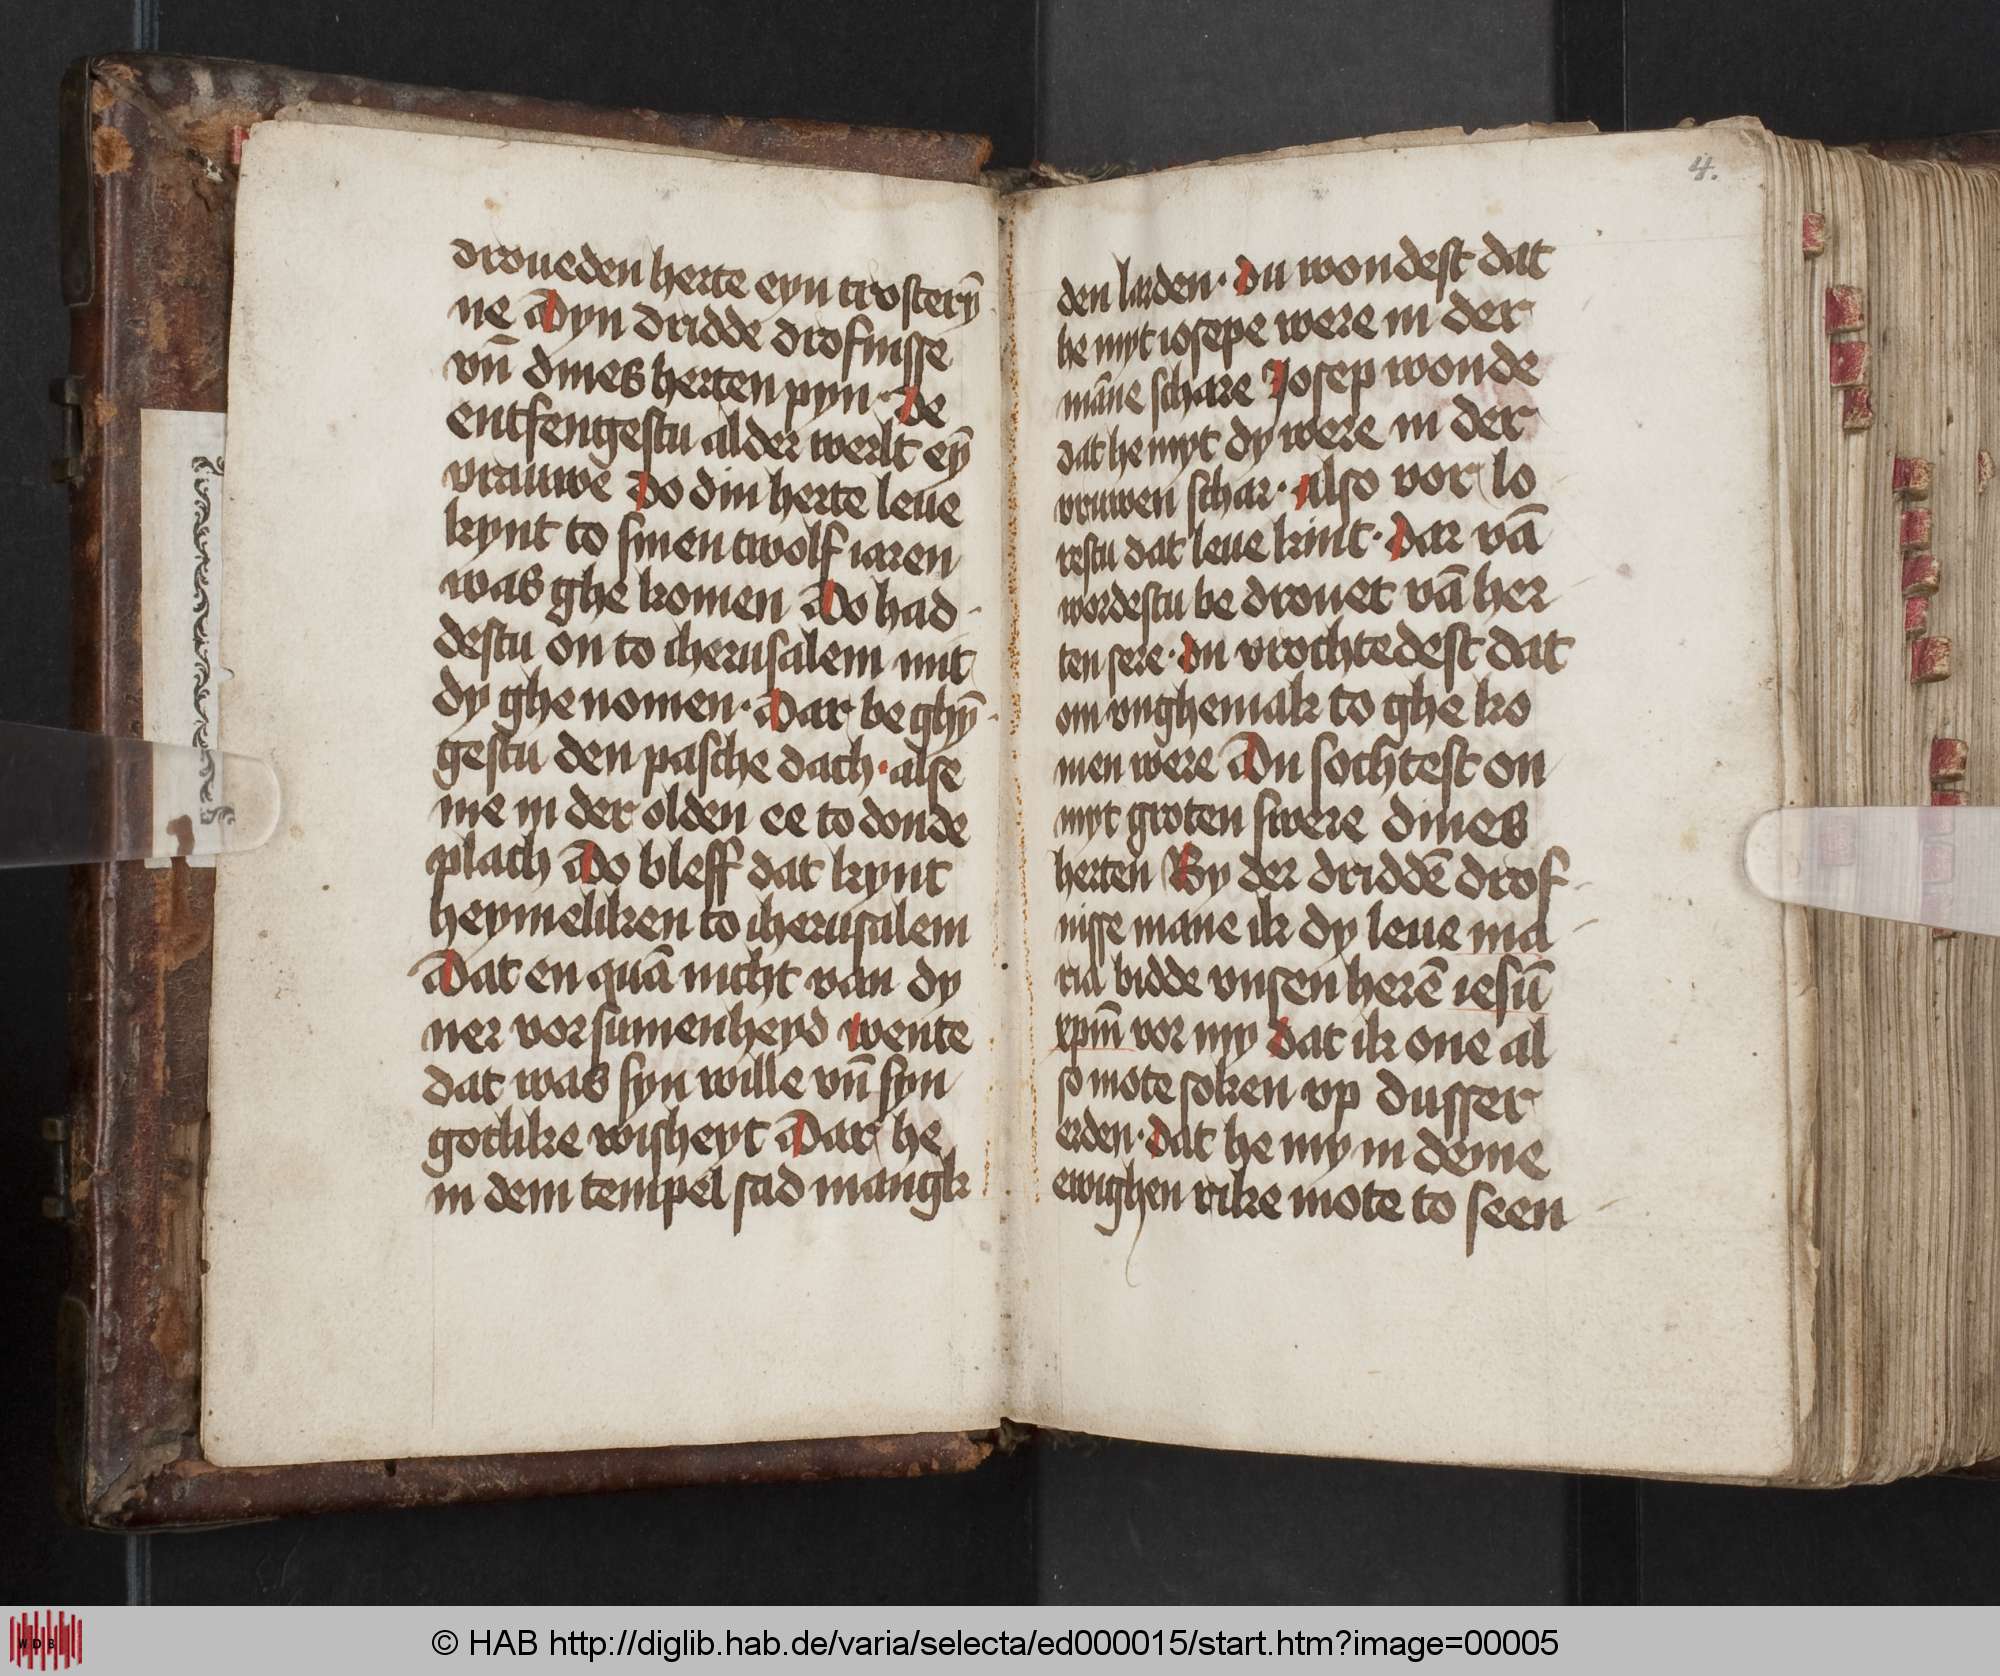 droueden herte eyn trosterȳ
ne Dyn dridde drofnisse
vn̄ dines herten pyn · De
entfengestu al der werlt eȳ
vrauwe Do din herte leue
kynt to sinen twolf iaren
was ghe komen Do had
destu on to iherusalem mit
dy ghe nomen · Dar be ghȳ
gestu den pasche dach · alse
me in der olden ee to donde
plach Do bleff dat kynt
heymeliken to iherusalem
Dat en quā nicht van dy
ner vorsumenheyd wente
dat was syn wille vn̄ syn
gotlike wisheyt Dar he
in dem tempel sad mangk
4.
den larden · du wondest dat
he myt iosepe were in der
māne schare Josep wonde
dat he myt dy were in der
vruwen schar · also vor lo
restu dat leue kint · Dar vā
wordestu be drouet vā her
ten sere · du vrochtedest dat
om vnghemak to ghe ko
men were Du sochtest on
myt groten swere dines
herten By der driddē drof
nisse mane ik dy leue ma
ria bidde vnsen herē iesū
xpm̄ vor my dat ik one al
so mote soken vp dusser
erden · dat he my in deme
ewighen rike mote to seen
WDB
© HAB http://diglib.hab.de/varia/selecta/ed000015/start.htm?image=00005